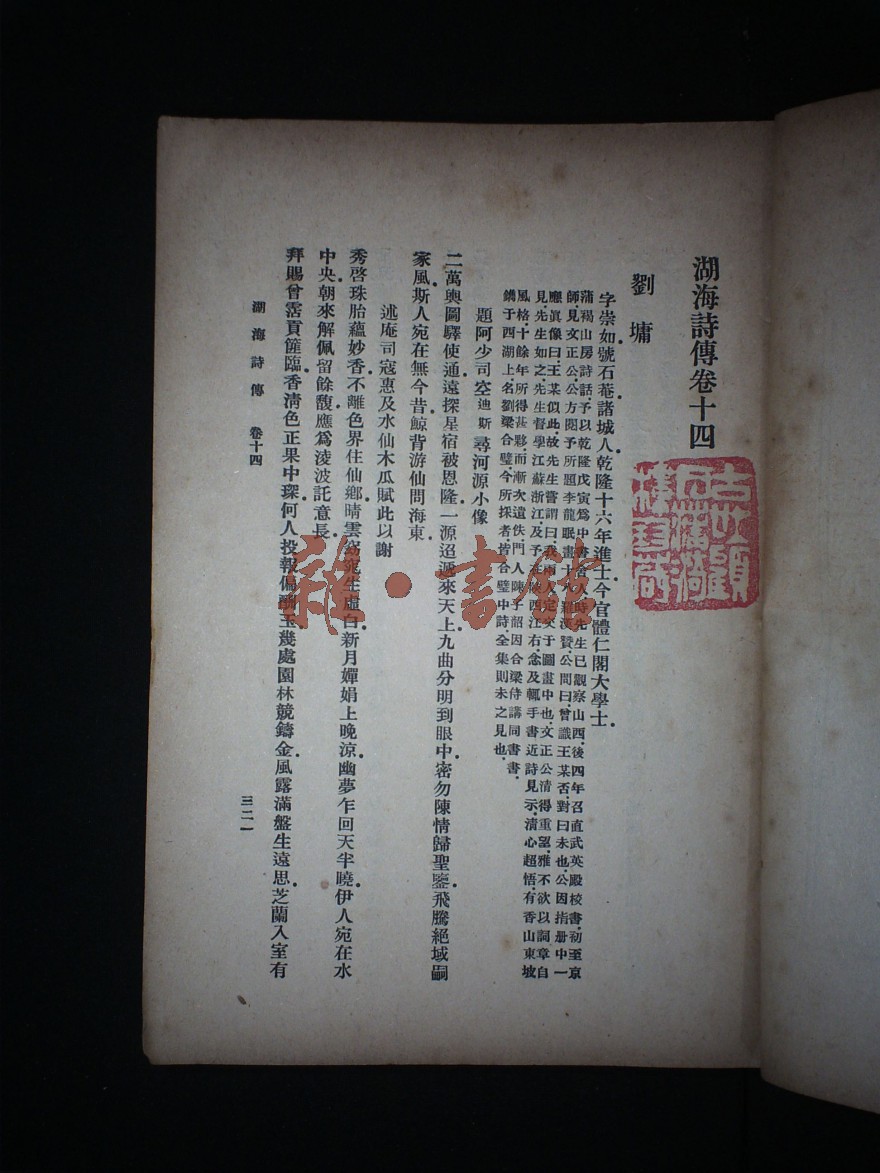 湖海詩傳卷十四
劉墉
字崇如號石菴諸城人乾隆十六年進士今官體仁閣大學士
蒲褐山房詩話予以乾隆戊寅爲中書舍人時先生已觀察山西後四年召直武英殿校書初至京
師見文正公公方閱予所題李龍眠畫十八羅漢贊公問曰曾識王某否對曰未也公因指册中一
應眞像曰王某似此故先生嘗謂曰我兩人定交于圖畫中也文正公清得重望雅不欲以詞章自
見先生如之先生督學江蘇浙江及予在陝西江右念及輒手書近詩見示清心超悟有香山東坡
風格十餘年所得甚夥而漸次遺佚門人陳予韶因合梁侍講同書書
鐫于西湖上名劉梁合璧今所採者皆合璧中詩全集則未之見也
題阿少司空迪斯尋河源小像
二萬輿圖驛使通遠探星宿被恩隆一源迢遞來天上九曲分明到眼中密勿陳情歸聖鑒飛騰絕域嗣
家風斯人宛在無今昔鯨背游仙問海東
述庵司寇惠及水仙木瓜賦此以謝
秀啓珠胎蘊妙香不離色界住仙鄉晴雲窈窕生虛白新月嬋娟上晚涼幽夢乍回天半曉伊人宛在水
中央朝來解佩留餘馥應爲淩波託意長
拜賜曾霑貢篚臨香清色正果中琛何人投報偏酬玉幾處園林競鑄金風露滿盤生遠思芝蘭入室有
湖海詩傳 卷十四
三二一
雜·書館